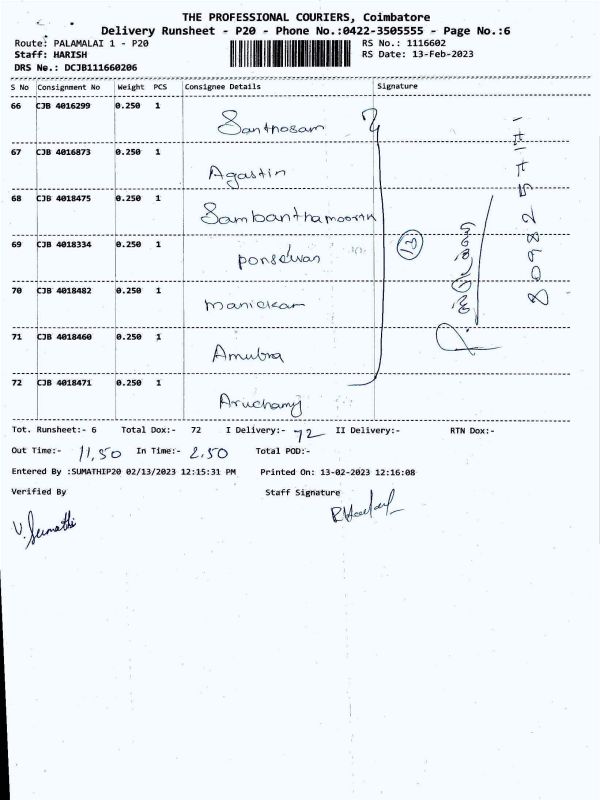 THE PROFESSIONAL COURIERS, Coimbatore
Delivery Runsheet - P20 - Phone No.:0422-3505555 - Page No.:6
Route: PALAMALAI 1 - P20 RS No.: 1116602
Staff: HARISH RS Date: 13-Feb-2023
DRS No.: DCJB111660206
S No Consignment No Weight PCS Consignee Details Signature
66 CJB 4016299 0.250 1 Santhosam
67 CJB 4016873 0.250 1 Agastin
68 CJB 4018475 0.250 1 Sambanthamoorth
69 CJB 4018334 0.250 1 ponselvan
13
70 CJB 4018482 0.250 1 manickar
71 CJB 4018460 0.250 1 Amubra
72 CJB 4018471 0.250 1 Aruchamy
Tot. Runsheet:- 6 Total Dox:- 72 I Delivery:- 72 II Delivery:- RTN Dox:-
Out Time:- 11.50 In Time:- 2.50 Total POD:-
Entered By :SUMATHIP20 02/13/2023 12:15:31 PM Printed On: 13-02-2023 12:16:08
Verified By Staff Signature
V. Sumathi